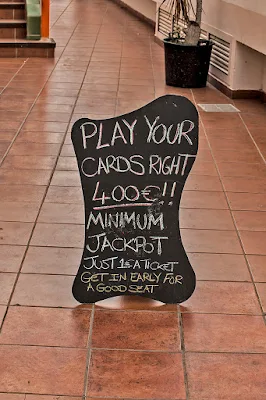 PLAY YOUR
CARDS RIGHT
400€!!
MINIMUM
JACKPOT
JUST 1€ A TICKET
GET IN EARLY FOR
A GOOD SEAT